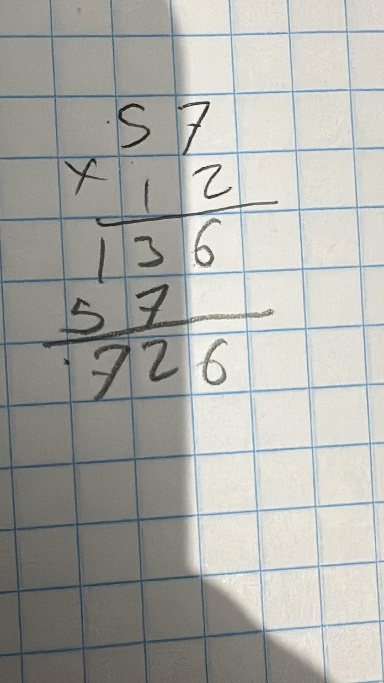 57
× 12
136
57
726